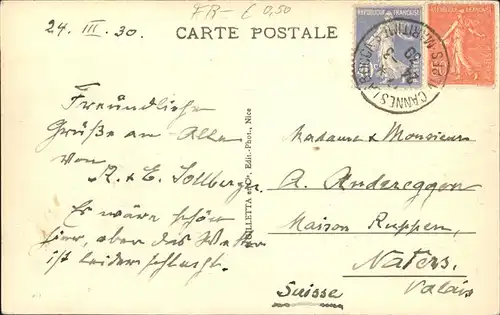 FR-C 0,50
24. III. 30.
CARTE POSTALE
REPUBLIQUE FRANÇAISE
REPUBLIQUE FRANÇAISE
CANNES
ALPES-MARITIMES
Freundliche
Grüße an Alle
von
R. & E. Sollberger
Es wäre schön
hier, aber das Wetter
ist leider schlecht.
GILLETTA et Cie, Edit.-Phot., Nice
Madame & Monsieur
A. Andereggen
Maison Ruppen,
Naters.
Valais
Suisse